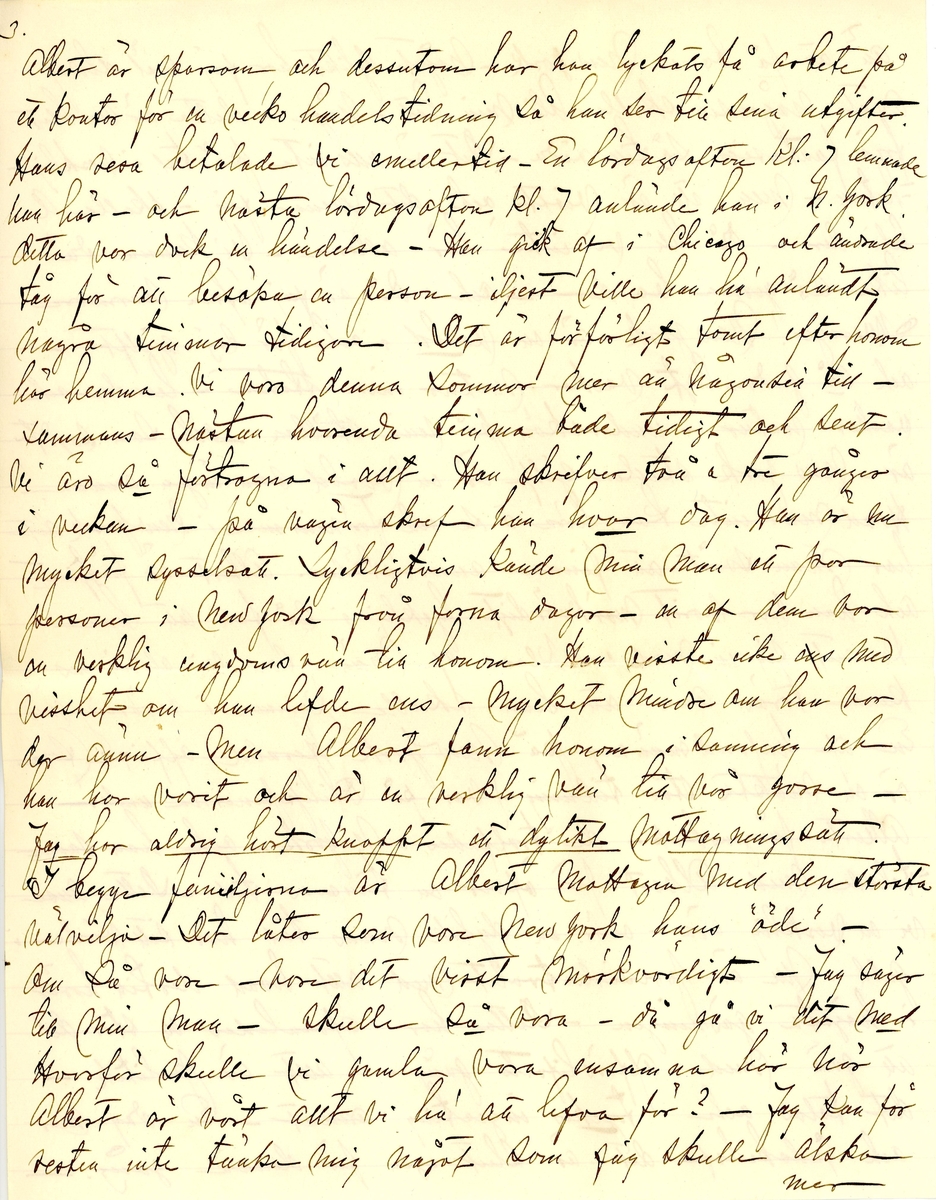 3.
Albert är sparsam och dessutom har han lyckats få arbete på
ett kontor för en vecko handelstidning så han ser till sina utgifter.
Hans resa betalade vi emellertid – En lördagsafton Kl. 7 lemnade
han här – och nästa lördagsafton kl. 7 anlände han i N. York.
detta var dock en händelse – Han gick af i Chicago och ändrade
tåg för att besöka en person – iljest ville han ha anländt
några timmar tidigare. Det är förfärligt tomt efter honom
här hemma. Vi voro denna sommar mer än någonsin till –
sammans – nästan hvarenda timma både tidigt och sent.
Vi äro så förtrogna i allt. Han skrifver två a tre gånger
i veckan – på vägen skref han hvar dag. Han är nu
mycket sysselsatt. Lyckligtvis kände min man ett par
personer i New York från forna dagar – en af dem var
en verklig ungdomsvän till honom. Han visste icke ens med
visshet om han lefde ens – mycket mindre om han var
der ännu – Men Albert fann honom i sanning och
han har varit och är en verklig vän till vår gosse –
Jag har aldrig hört knappt ett dylikt mottagningssätt.
I begge familjerna är Albert mottagen med den största
välvilja – Det låter som vore New York hans "öde" –
om så vore – vore det visst märkvärdigt – Jag säger
till min man – skulle så vara – då gå vi dit med
Hvarför skulle vi gamla vara ensamna här när
Albert är vårt allt vi ha att lefva för? – Jag kan för
resten inte tänka mig något som jag skulle älska
mer